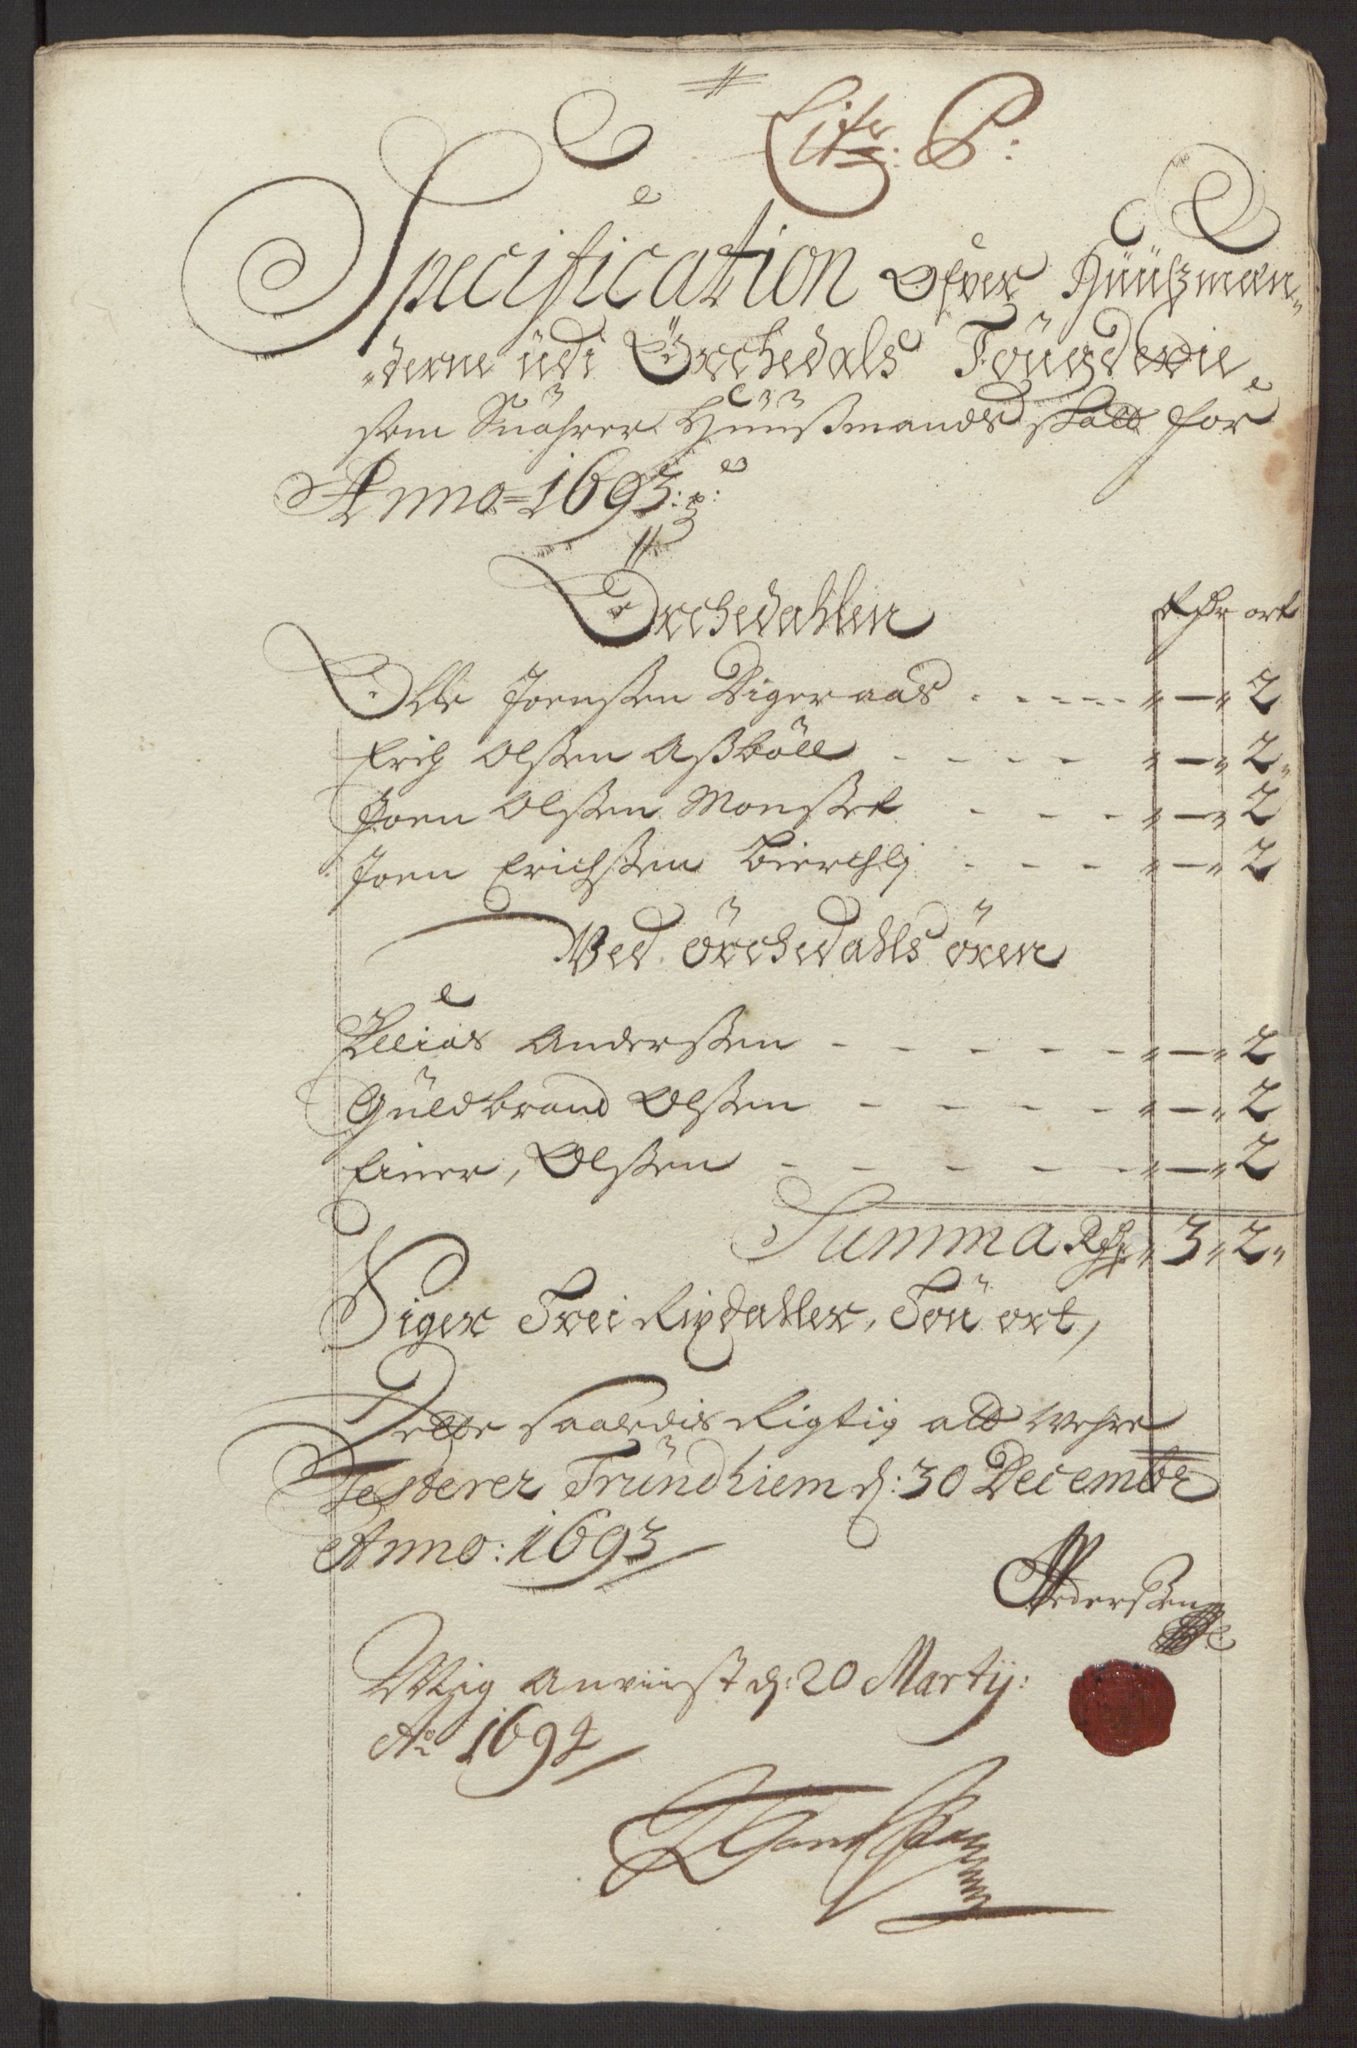 Litr: P:
Specification Ofver Huuszman-
derne udi Örchedals Fougderie
som Suahrer Huuszmands skatt for
Anno 1693:
Örchedahlen
Rdr ort
Olle Joenszen Digeraas - - - - „ — „ 2
Erich Olszen Aszböll - - - - „ — „ 2
Joen Olszen Monszet - - - „ — „ 2
Joen Erichszen Bierchlj - - - „ — „ 2
Ved Örchedahls ören
Ellias Anderszen - - - - - „ — „ 2
Guldbrand Olszen - - - - „ — „ 2
Einer, Olszen - - - - - „ — „ 2
Summa Rdr „ 3 „ 2 „
Siger Trei Rixdaller, Tou ort,
Dette saaledis Rigtig att Wehre
Testerer Trundhiem d: 30 Decembr
Anno: 1693
Pederszen
Mig Anviist d: 20 Martij:
Ao 1694